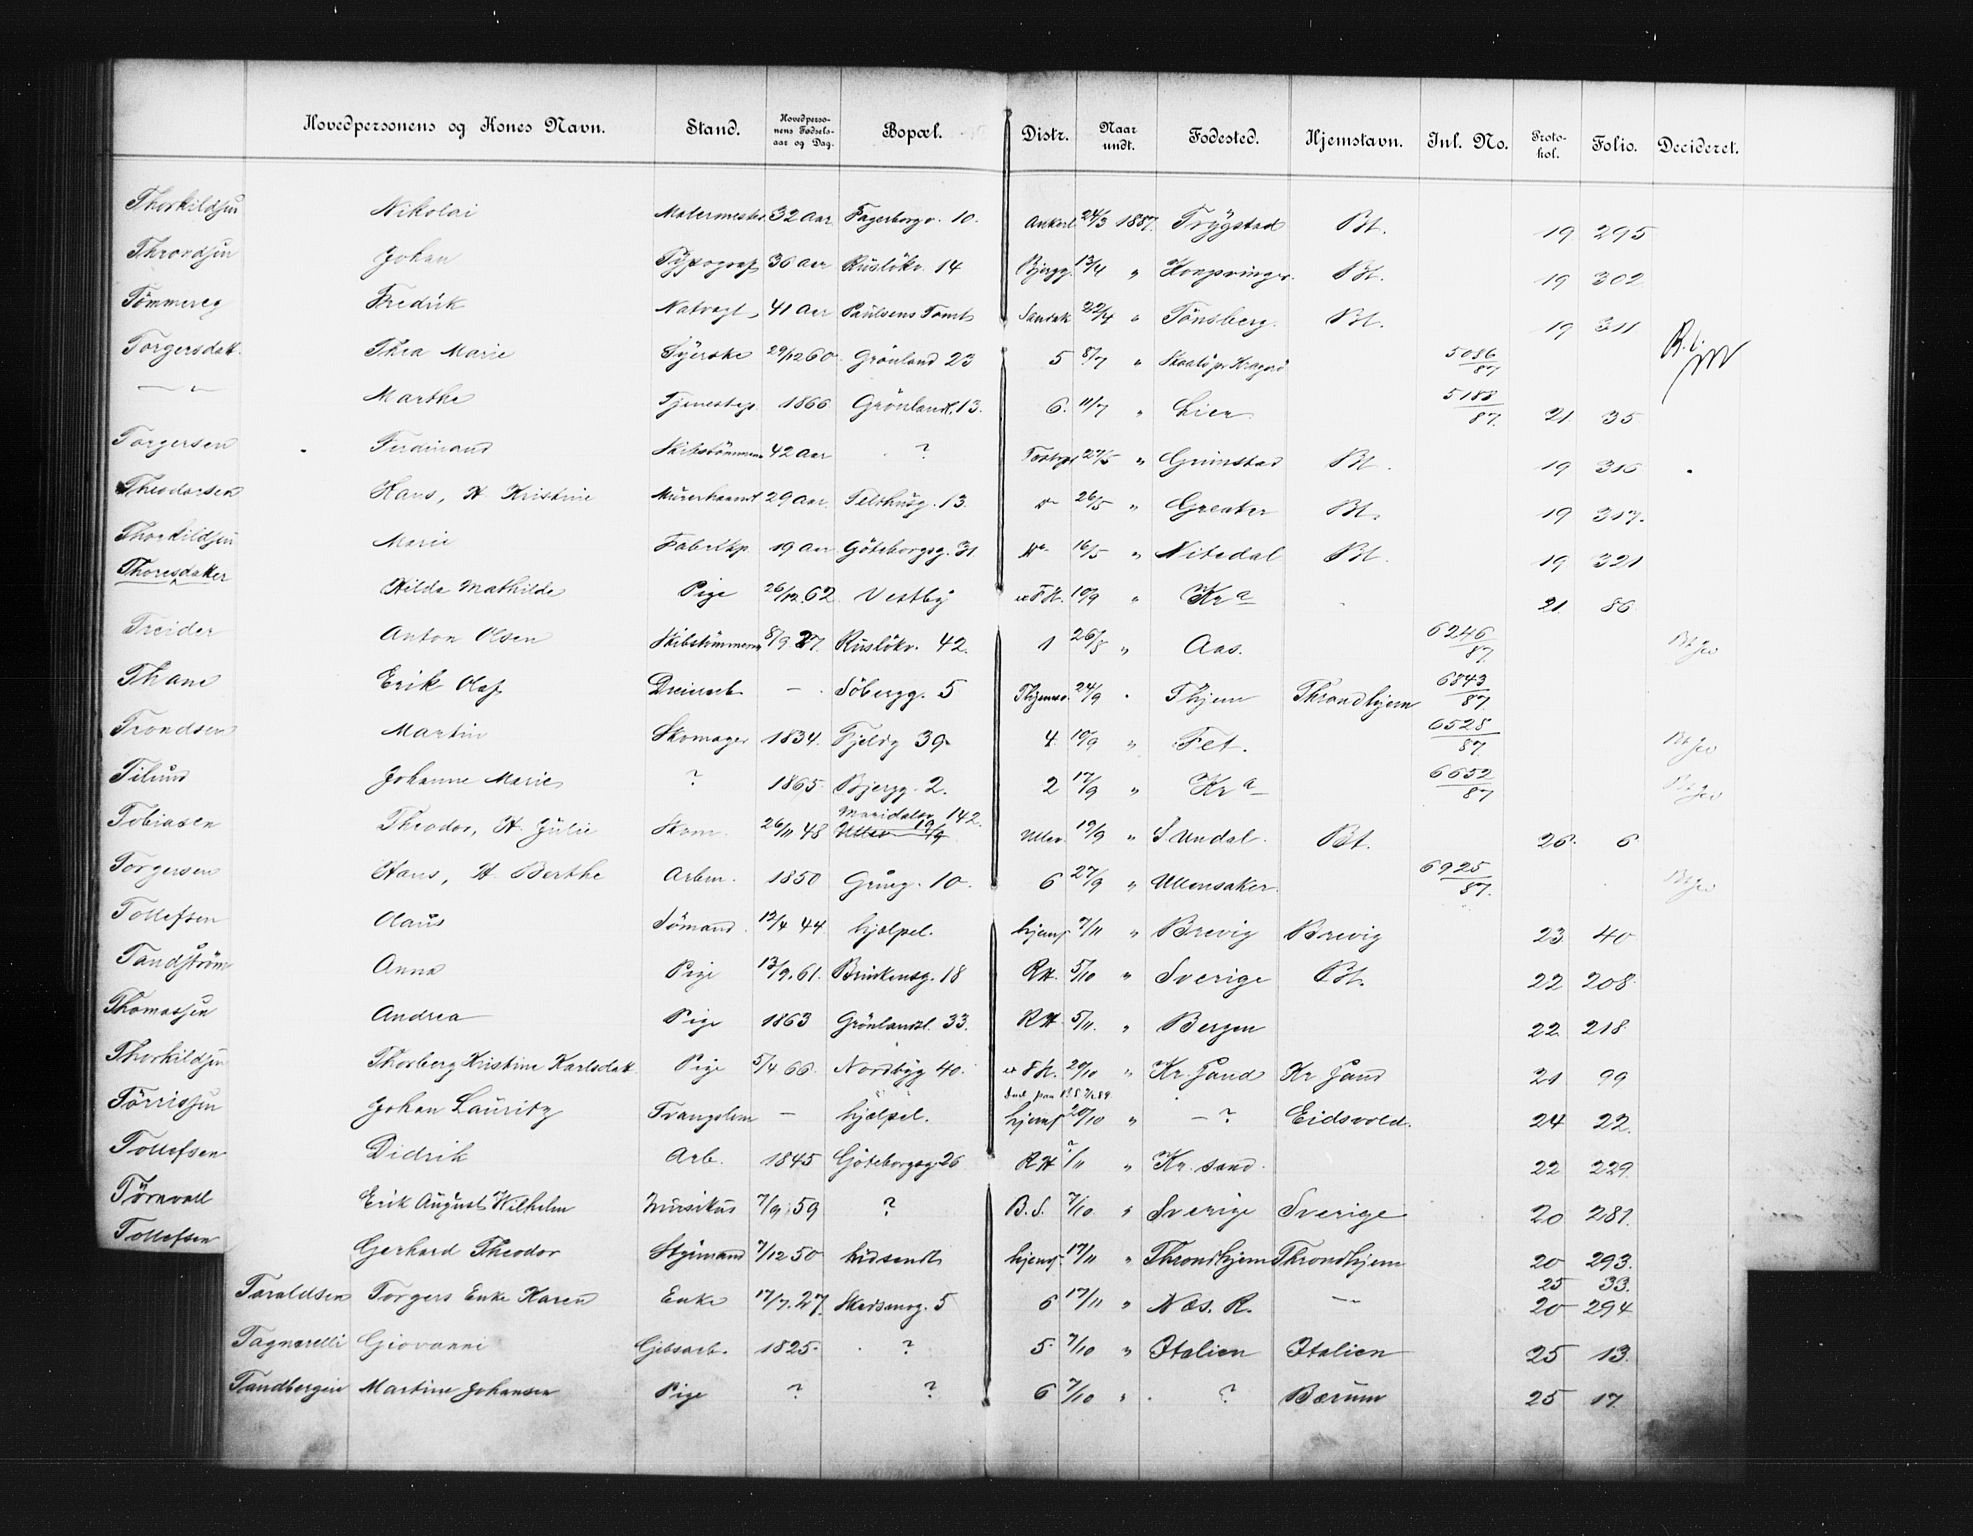 Hovedpersonens og Kones Navn. Stand. Hovedpersonens Fødselsaar og Dag. Bopæl. Distr. Naar undt. Fødested. Hjemstavn. Inl. No. Protokol. Folio. Decideret.
Thorkildsen Nikolai Malermester 32 Aar Fagerborgv. 10. Ankerl 24/3 1887. Trygstad Bt. 19 295
Throndsen Johan Typograf 36 Aar Rusløkv. 14 Bjergg. 13/4 " Kongsvinger Bt. 19 302
Tømmereg Fredrik Natvagt 41 Aar Paulsens Tomt Sandak 22/4 " Tønsberg. Bt. 19 311
Torgersdatt. Thea Marie Syerske 29/12 60 Grønland 23 5 8/7 " Skaatø pr. Kragerø 5086/87
— " — Marthe Tjenestep. 1866 Grønlandsl. 13. 6. 11/7 " Lier 5188/87. 21. 35
Torgersen Ferdinand Skibstømmerm 42 Aar ? 27/5 " Grimstad Bt. 19 315
Theodorsen Hans, H. Kristine Murerhaandt 29 Aar. Telthusg. 13. 26/5 " Greaker Bt. 19 317.
Thorkildsen Marie Fabrikp. 19 Aar Göteborgsg. 31 16/5 " Nitedal Bt. 19 321
Thoresdatter Hilda Mathilde Pige 26/12. 62 Vestby F.H. 10/9 " Kra 21 86
Treider Anton Olsen Skibstømmerm 8/9 27. Rusløkv. 42. 1 26/8 " Aas. 6246/87
Thane Erik Olaf Dreierarb — Søbergg. 5 24/9 Thjem Throndhjem 6843/87
Trondsen Martin Skomager 1834. Fjeldg 39. 4. 10/9 " Fet. 6528/87
Tilund Johanne Marie ? 1865. Bjergg. 2. 2 17/9 " Kra 6652/87
Tobiasen Theodor, H. Julie Skom. 26/11 48 Maridalsv. 142. Ullev. 19/9 " S. Undal. Bt. 26. 6
Torgersen Hans, H. Berthe Arbm. 1850 Grüng. 10. 6 27/9 " Ullensaker. 6925/87.
Tollefsen Olaus Sømand. 12/4 44 hjælpel. hjemf 7/11 " Brevig Brevig 23 40
Tandstrøm Anna Pige 13/9. 61. Brinkensg. 18 RH. 5/10 " Sverige Bt. 22 208
Thomassen Andrea Pige 1863 Grønlandsl. 33. RH 5/11. " Bergen 22. 218
Thorkildsen Thorberg Kristine Karlsdatt Pige 5/4 66. Nordbyg 40. F.H. 20/10 " Kr. Sand Kr Sand 21 99
Tørrissen Johan Lauritz Tvangslem — hjælpel. hjemf 20/10 " — ? Eidsvold. 24 22.
Tollefsen Didrik Arb. 1845 Göteborgsg. 26 RH ?/11 " Kr. sand. 22 229
Tørnvall Erik August Wilhelm Musikus 7/9 59 ? B.S. 7/10. " Sverige Sverige 20 281.
Tollefsen Gerhard Theodor Styrmand 7/12 50 hidsendt hjemf. 17/11 " Throndhjem Throndhjem 20 293.
25 33.
Taraldsen Torgers Enke Karen Enke 17/7. 27. Skedsmog. 5 6 17/11 " Næs. R. — 20 294
Tagnarelli Giovanni Gibsarb. 1825. ? 5. 7/10 " Italien Italien 25 13.
Tandbergeie Martine Johansen Pige ? ? 6 7/10 " ? Bærum 25 17.